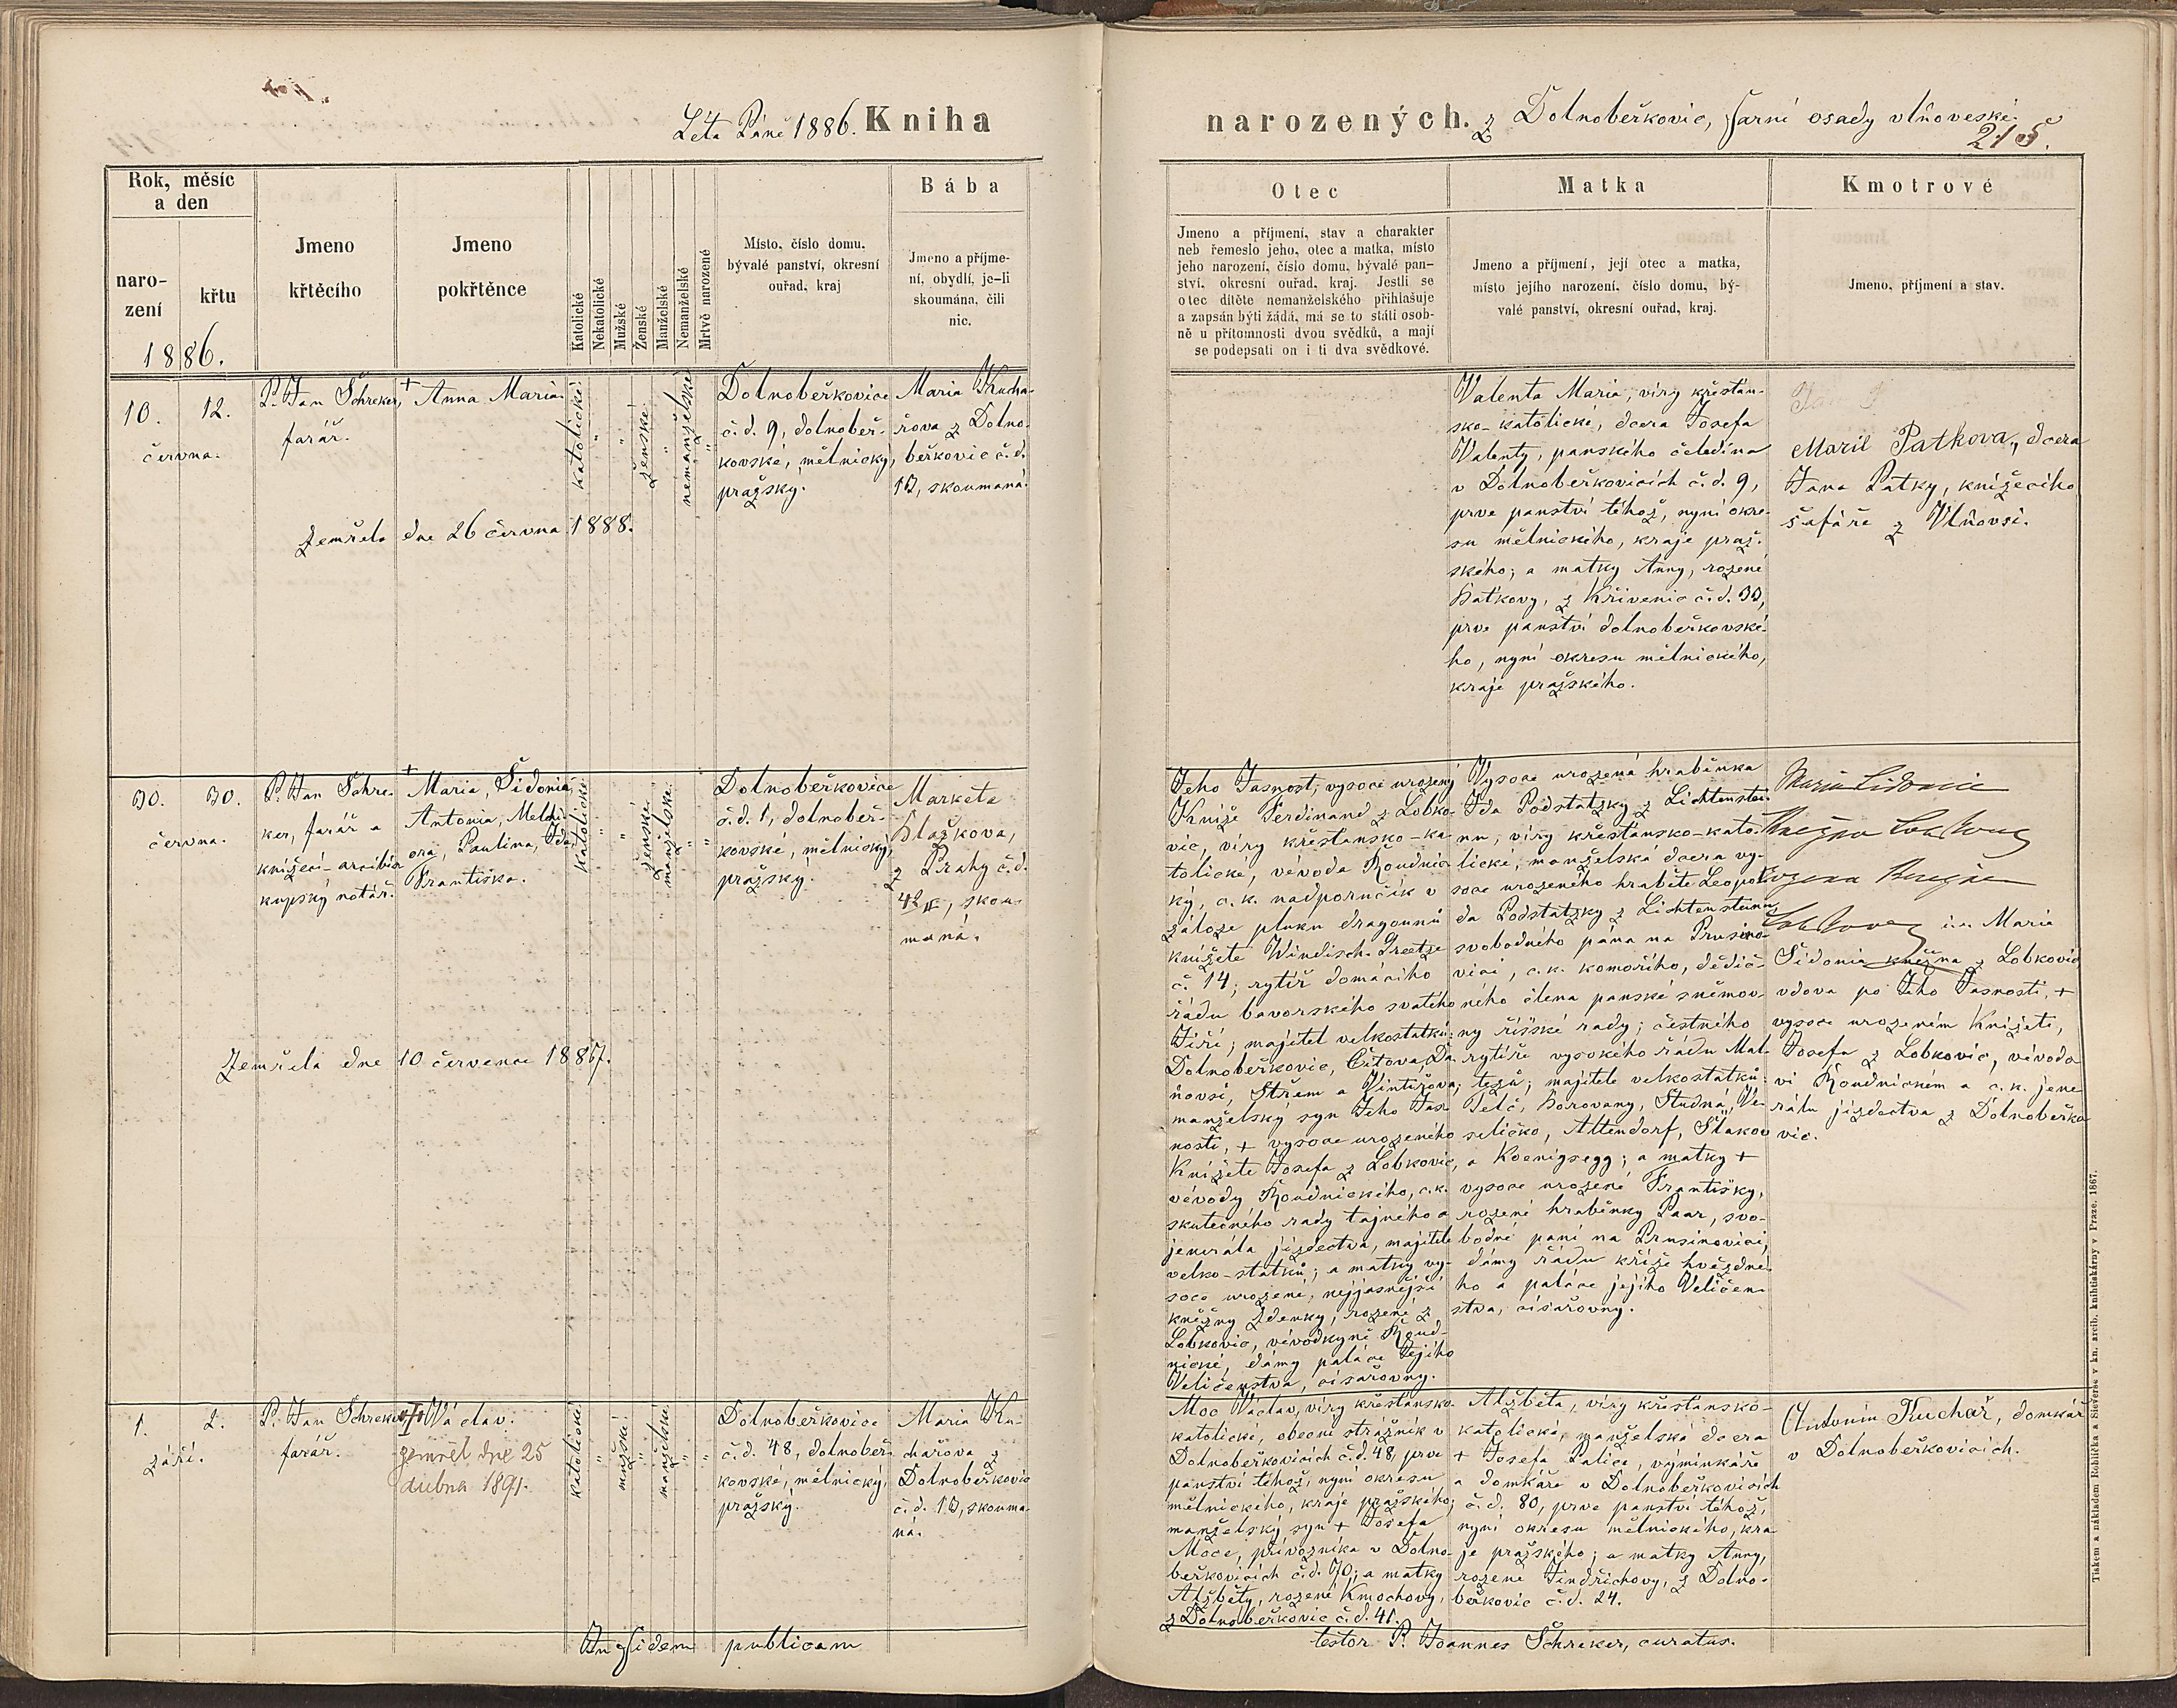 Léta Páně 1886. Kniha
narozených. z Dolnobeřkovic, farní osady vlňoveské.
215.
Rok, měsíc
a den
naro-
zení
křtu
1886.
Jmeno
křtěcího
Jmeno
pokřtěnce
Katolické
Nekatolické
Mužské
Ženské
Manželské
Nemanželské
Mrtvě narozené
Místo, číslo domu,
bývalé panství, okresní
ouřad, kraj
Bába
Jmeno a příjme-
ní, obydlí, je-li
skoumána, čili
nic.
Otec
Jmeno a příjmení, stav a charakter
neb řemeslo jeho, otec a matka, místo
jeho narození, číslo domu, bývalé pan-
ství, okresní ouřad, kraj. Jestli se
otec dítěte nemanželského přihlašuje
a zapsán býti žádá, má se to státi osob-
ně u přítomnosti dvou svědků, a mají
se podepsati on i ti dva svědkové.
Matka
Jmeno a příjmení, její otec a matka,
místo jejího narození, číslo domu, bý-
valé panství, okresní ouřad, kraj.
Kmotrové
Jmeno, příjmení a stav.
10. 12.
června.
P. Jan Schreker,
farář.
+ Anna Maria.
katolické.
ženské.
nemanželské.
Dolnobeřkovice
č. d. 9, dolnobeř-
kovské, mělnický,
pražský.
Maria Kucha-
řova z Dolno-
beřkovic č. d.
13, skoumaná.
Zemřela dne 26 června 1888.
Valenta Maria, víry křesťan-
sko-katolické, dcera Josefa
Valenty, panského čeledína
v Dolnobeřkovicích č. d. 9,
prve panství téhož, nyní okre-
su mělnického, kraje praž-
ského; a matky Anny, rozené
Haťkovy, z Křivenic č. d. 33,
prve panství dolnobeřkovské-
ho, nyní okresu mělnického,
kraje pražského.
Marie Patkova, dcera
Jana Patky, knížecího
šafáře z Vlňovsi.
30. 30.
června.
P. Jan Schre-
ker, farář a
knížecí-arcibis-
kupský notář.
+
Maria, Sidonia,
Antonia, Melchi-
ora, Paulina, Ida,
Františka.
katolické.
ženské.
manželské.
Dolnobeřkovice
č. d. 1, dolnobeř-
kovské, mělnický,
pražský.
Marketa
Blažkova,
z Prahy č. d.
42 II, skou-
maná.
Zemřela dne 10 července 1887.
Jeho Jasnost, vysoce urozený
Kníže Ferdinand z Lobko-
vic, víry křesťansko-ka-
tolické, vévoda Roudnic-
ký, c. k. nadporučík v
záloze pluku dragounů
knížete Windisch-Graetze
č. 14; rytíř domácího
řádu bavorského svatého
Jiří; majitel velkostatků:
Dolnobeřkovic, Cítova, Da-
ňovsi, Střem a Vintířova;
manželský syn Jeho Jas-
nosti, + vysoce urozeného
Knížete Josefa z Lobkovic,
vévody Roudnického, c. k.
skutečného rady tajného a
jenerála jízdectva, majitele
velko-statků; a matky vy-
soce urozené, nejjasnější
kněžny Zdenky, rozené z
Lobkovic, vévodkyně Roud-
nické, dámy paláce Jejího
Veličenstva, císařovny.
Vysoce urozená hraběnka
Ida Podstatzky z Lichtenstei-
nu, víry křesťansko-kato-
lické, manželská dcera vy-
soce urozeného hraběte Leopol-
da Podstatzky z Lichtensteinu,
svobodného pána na Prusino-
vici, c. k. komořího, dědič-
ného člena panské sněmov-
ny říšské rady; čestného
rytíře vysokého řádu Mal-
tezů; majitele velkostatků:
Telč, Borovany, Studná, Ve-
seličko, Altendorf, Slakov
a Koenigsegg; a matky +
vysoce urozené Františky,
rozené hraběnky Paar, svo-
bodné paní na Prusinovici,
dámy řádu kříže hvězdné-
ho a paláce jejího Veličen-
stva, císařovny.
Maria Sidonie
Kněžna Lobkovic
Lobkovic Maria
Sidonia kněžna z Lobkovic
vdova po Jeho Jasnosti, +
vysoce urozeném Knížeti,
Josefu z Lobkovic, vévodo-
vi Roudnickém a c. k. jene-
rálu jízdectva z Dolnobeřko-
vic.
1. 2.
září.
P. Jan Schreker,
farář.
+ Václav.
zemřel dne 25
dubna 1891.
katolické.
mužské.
manželské.
Dolnobeřkovice
č. d. 48, dolnobeř-
kovské, mělnický,
pražský.
Maria Ku-
chařova z
Dolnobeřkovic
č. d. 13, skouma-
ná.
Moc Václav, víry křesťansko-
katolické, obecní strážník v
Dolnobeřkovicích č. d. 48, prve
panství téhož, nyní okresu
mělnického, kraje pražského;
manželský syn + Josefa
Moce, přívozníka v Dolno-
beřkovicích č. d. 70; a matky
Alžběty, rozené Kmochovy,
z Dolnobeřkovic č. d. 41.
Alžběta, víry křesťansko-
katolické, manželská dcera
+ Josefa Palice, výminkáře
a domkáře v Dolnobeřkovicích
č. d. 80, prve panství téhož,
nyní okresu mělnického, kra-
je pražského; a matky Anny,
rozené Jindřichovy, z Dolno-
beřkovic č. d. 24.
Antonín Kuchař, domkář
v Dolnobeřkovicích.
In fidem publicam
testor P. Joannes Schreker, curatus.
Tiskem a nákladem Rohlíčka a Sieverse v kn. arcib. knihtiskárny v Praze. 1867.